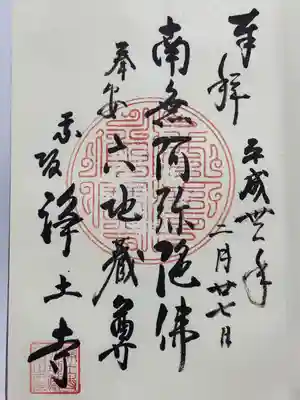 奉拝
平成卅一年
二月廿七日
南無阿弥陀佛
奉安六地蔵尊
赤坂
浄土寺